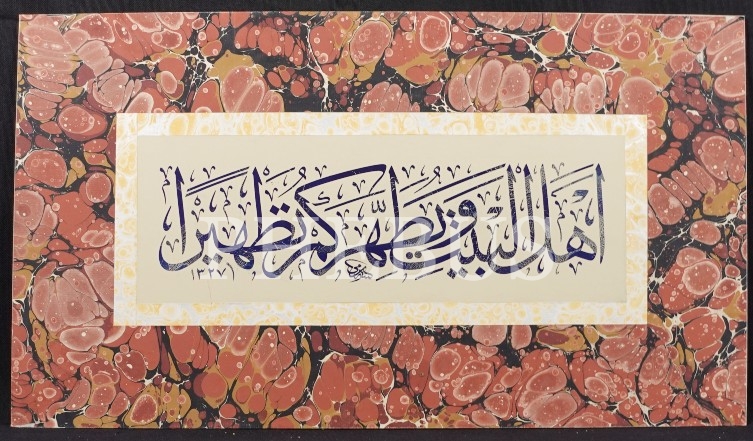 اهل البيت ويطهركم تطهيرا
١٣٣٧